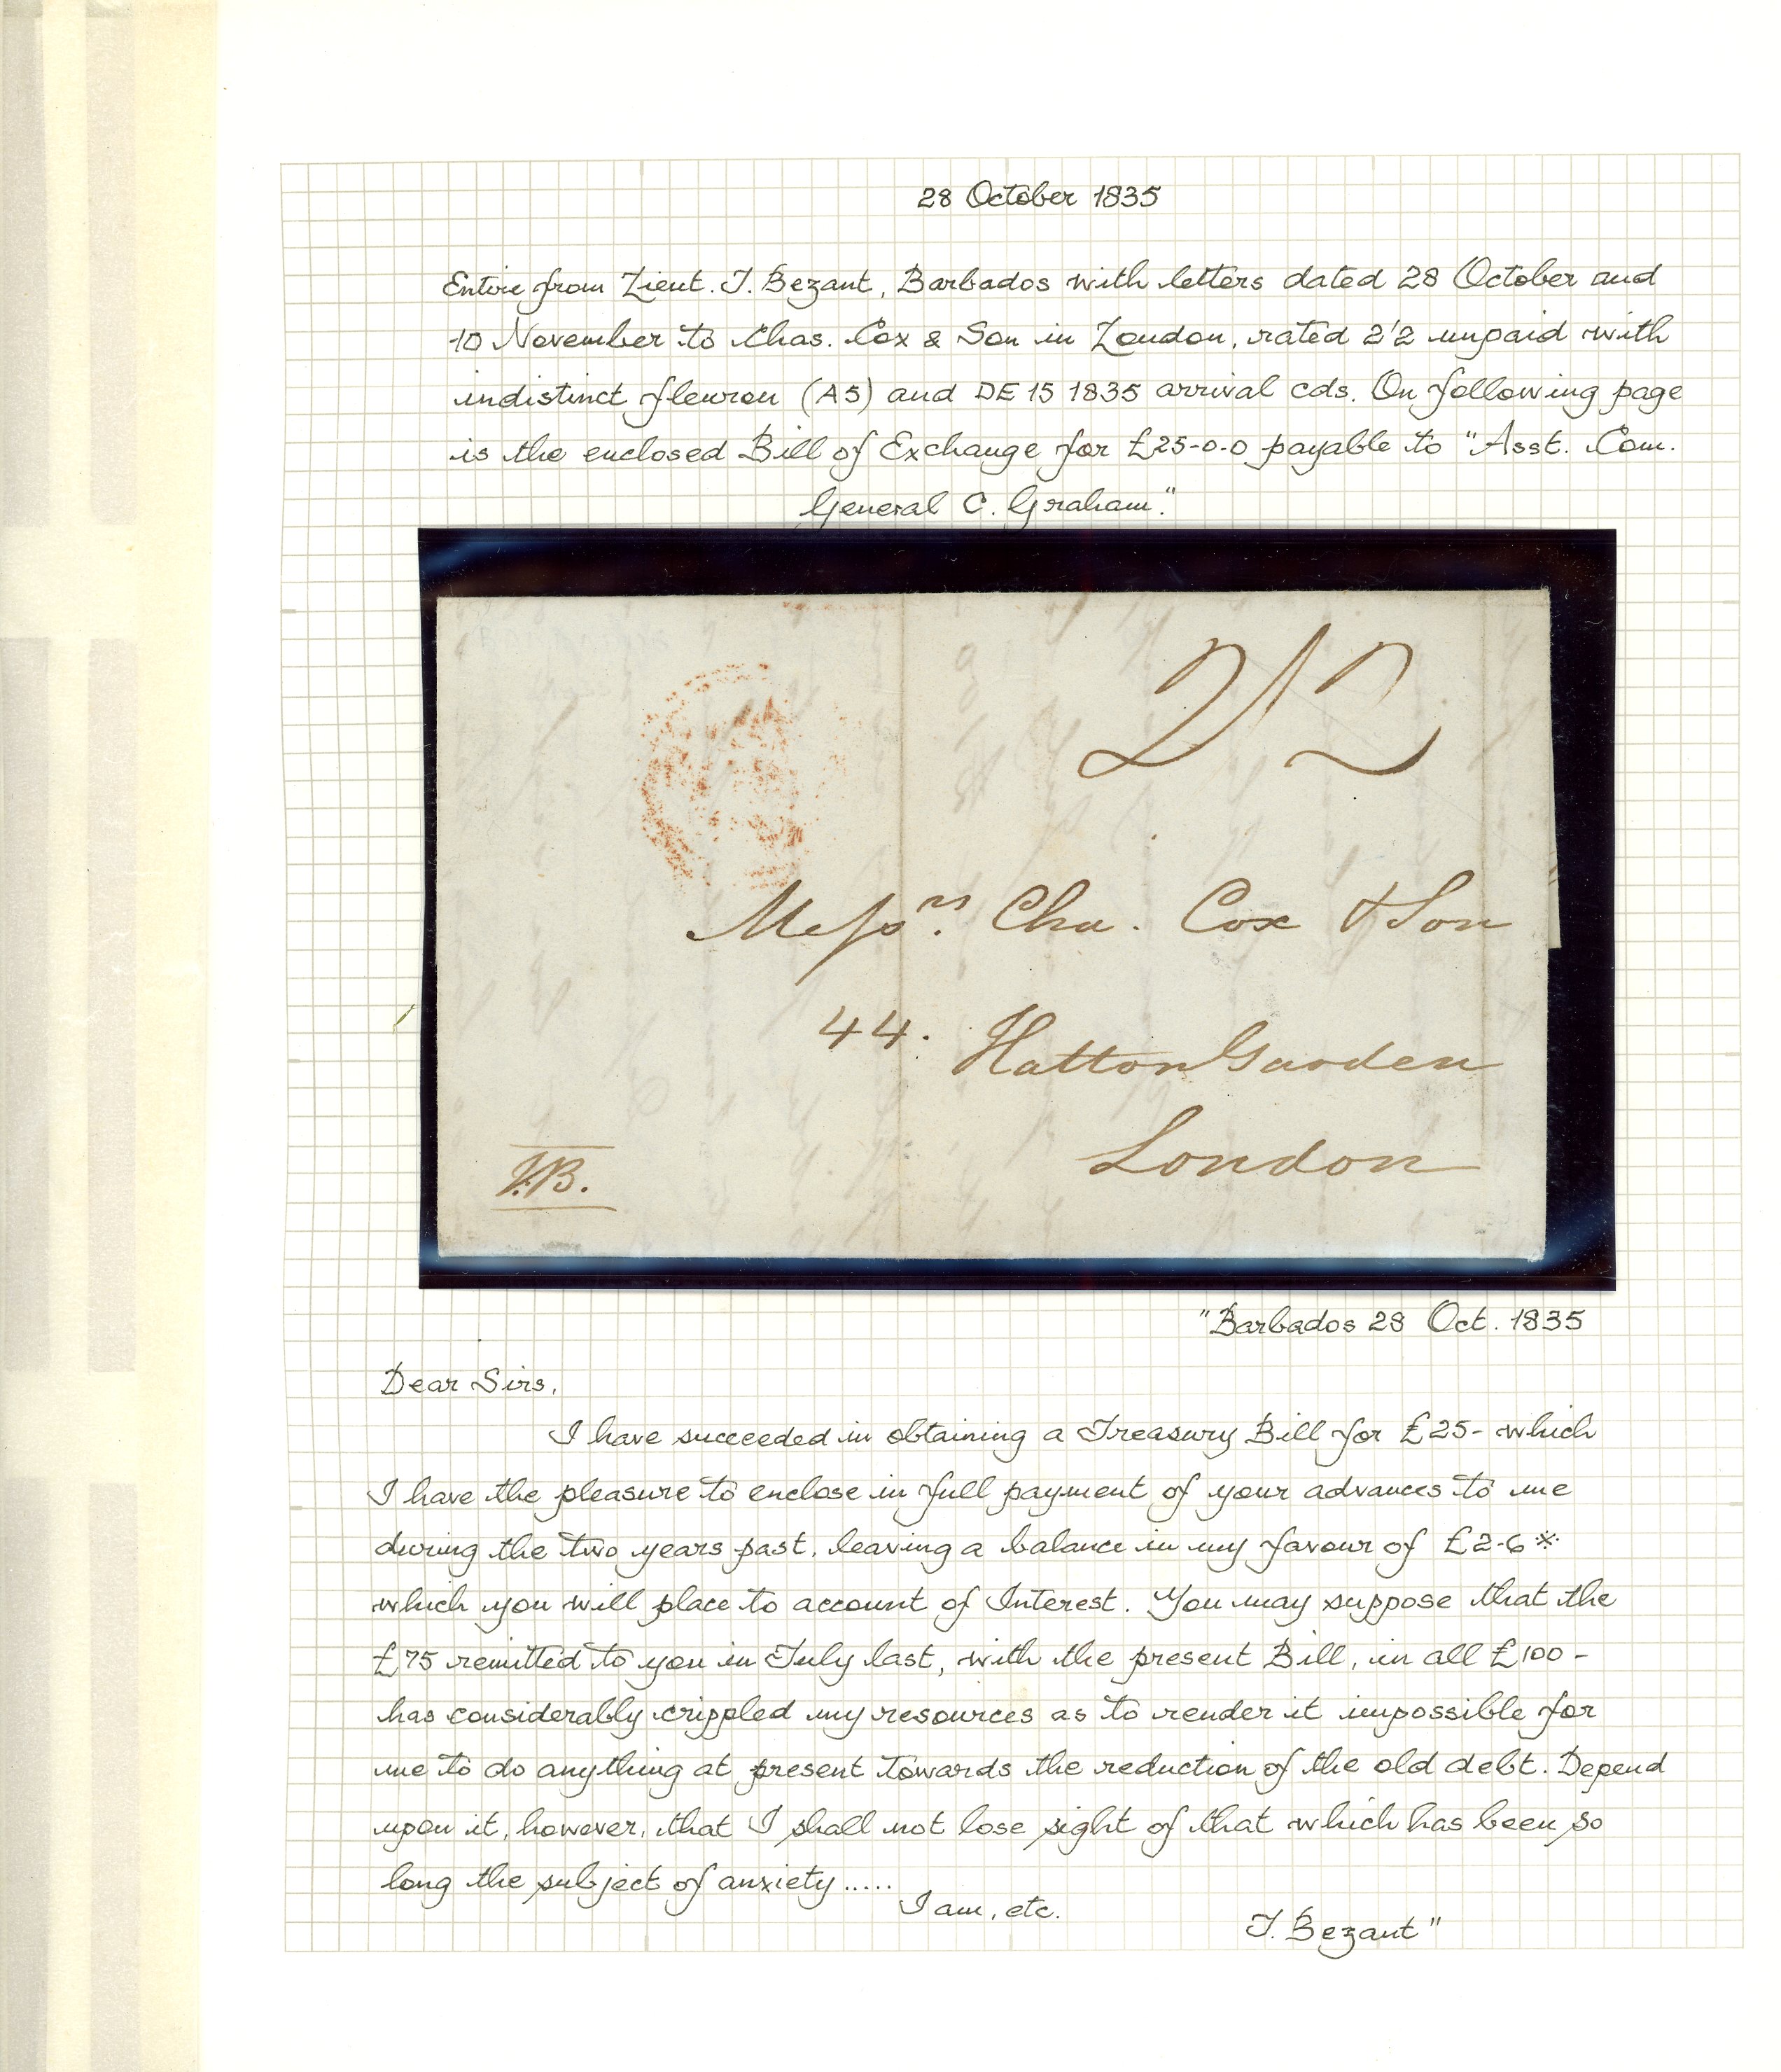 28 October 1835
Entire from Lieut. J. Bezant, Barbados with letters dated 28 October and
10 November to Chas. Cox & Son in London, rated 2'2 unpaid with
indistinct fleuron (A5) and DE 15 1835 arrival cds. On following page
is the enclosed Bill of Exchange for £25-0-0 payable to "Asst. Com.
General C. Graham."
2/2
Messrs. Cha. Cox & Son
44. Hatton Garden
London
J.B.
"Barbados 28 Oct. 1835
Dear Sirs,
I have succeeded in obtaining a Treasury Bill for £25- which
I have the pleasure to enclose in full payment of your advances to me
during the two years past, leaving a balance in my favour of £2-6 *
which you will place to account of Interest. You may suppose that the
£75 remitted to you in July last, with the present Bill, in all £100 -
has considerably crippled my resources as to render it impossible for
me to do anything at present towards the reduction of the old debt. Depend
upon it, however, that I shall not lose sight of that which has been so
long the subject of anxiety .....
I am, etc.
J. Bezant"